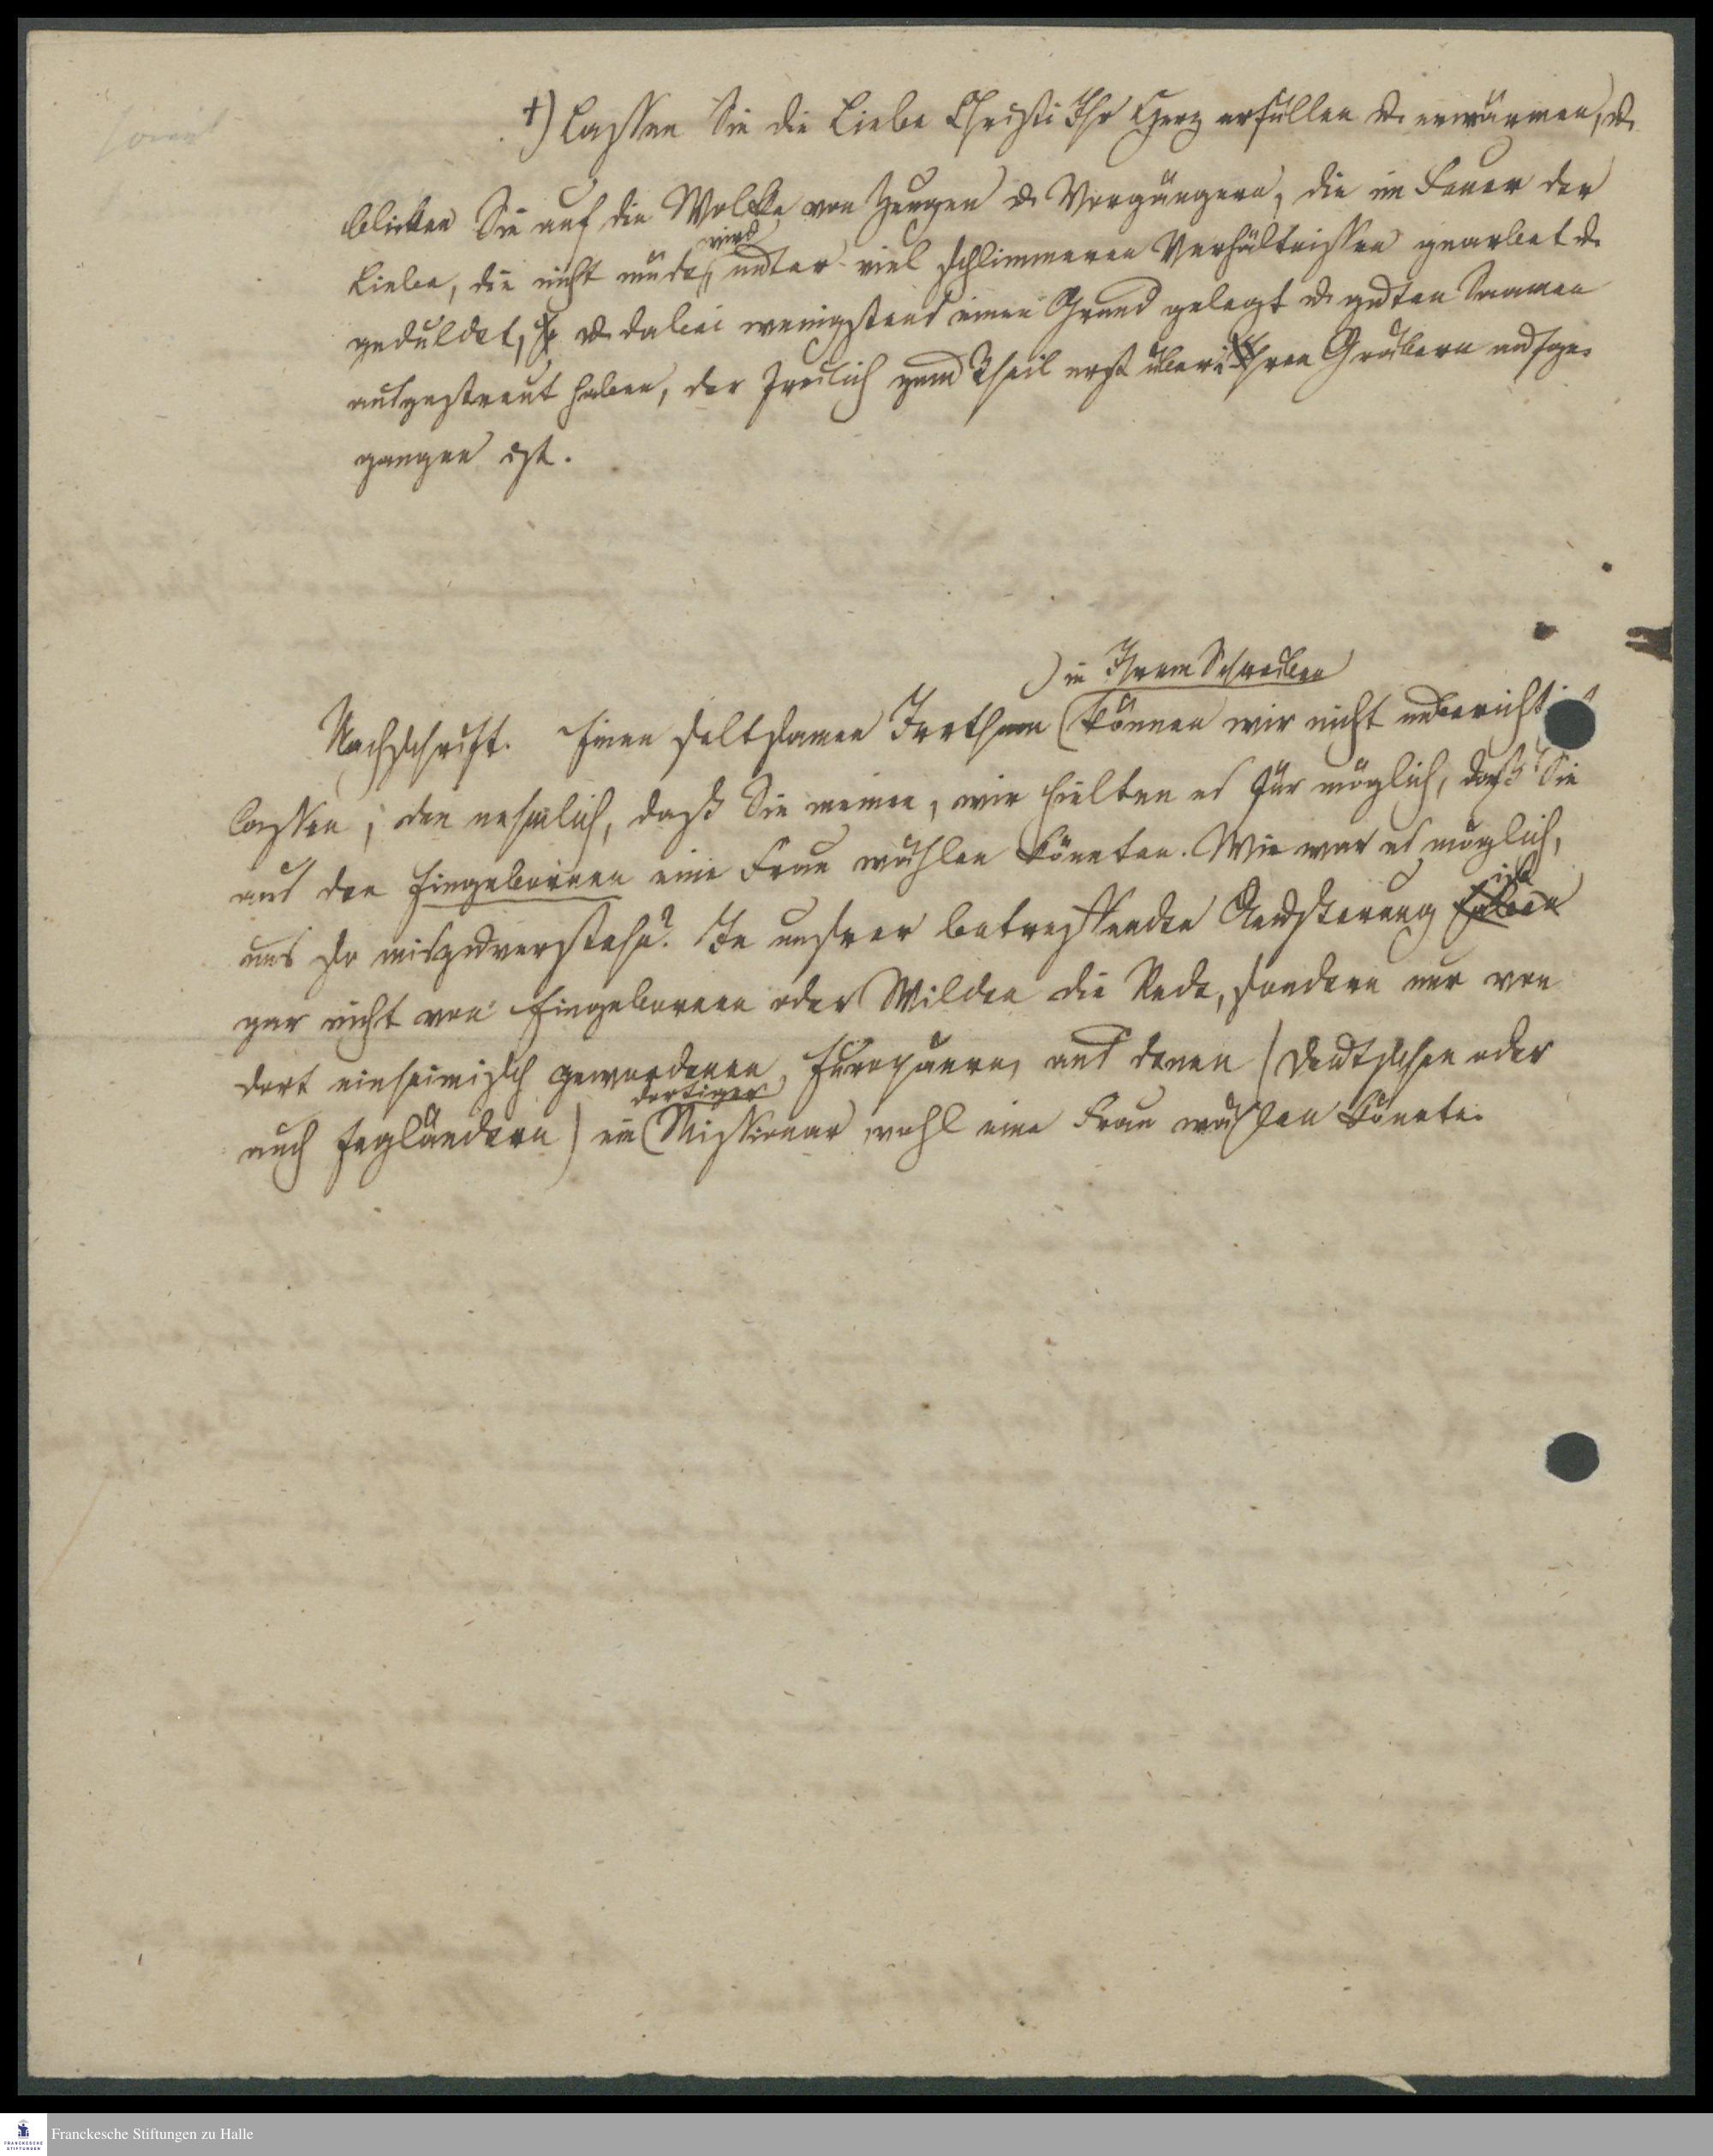 †) Lassen Sie die Liebe Christi Ihr Herz erfüllen u. erwärmen, u.
blicken Sie auf die Wolke von Zeugen u. Vorgängern, die im Feuer der
Liebe, die nicht müde wird, unter viel schlimmeren Verhältnissen gearbeitet u.
geduldet, u. dabei wenigstens einen Grund gelegt u. guten Saamen
ausgestreut haben, der freilich zum Theil erst über ihren Gräbern aufge-
gangen ist.
in Ihrem Schreiben
Nachschrift. Einen seltsamen Irrthum können wir nicht unberichtigt
lassen, den nehmlich, daß Sie meinen, wir hielten es für möglich, daß Sie
aus den Eingebornen eine Frau wählen könnten. Wie war es möglich,
uns so miszuverstehn? In unsrer betreffenden Aeusserung ist
gar nicht von Eingebornen oder Wilden die Rede, sondern nur von
dort einheimisch gewordenen Europäern, aus denen (Deutschen oder
auch Engländern) ein dortiger Missionar wohl eine Frau wählen könnte.
Franckesche Stiftungen zu Halle
FRANCKESCHE
STIFTUNGEN